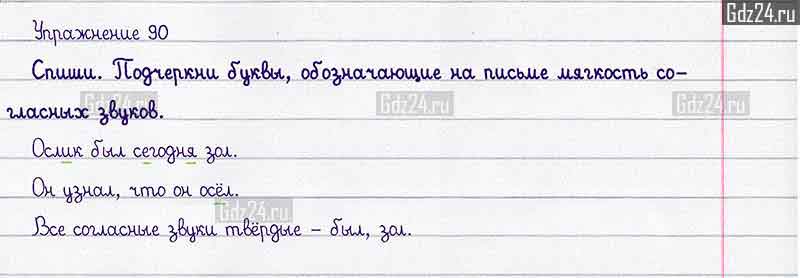 Gdz24.ru
Упражнение 90
Спиши. Подчеркни буквы, обозначающие на письме мягкость со-
Gdz24.ru Gdz24.ru Gdz24.ru
гласных звуков.
Ослик был сегодня зол.
Он узнал, что он осёл.
Gdz24.ru
Все согласные звуки твёрдые – был, зол.